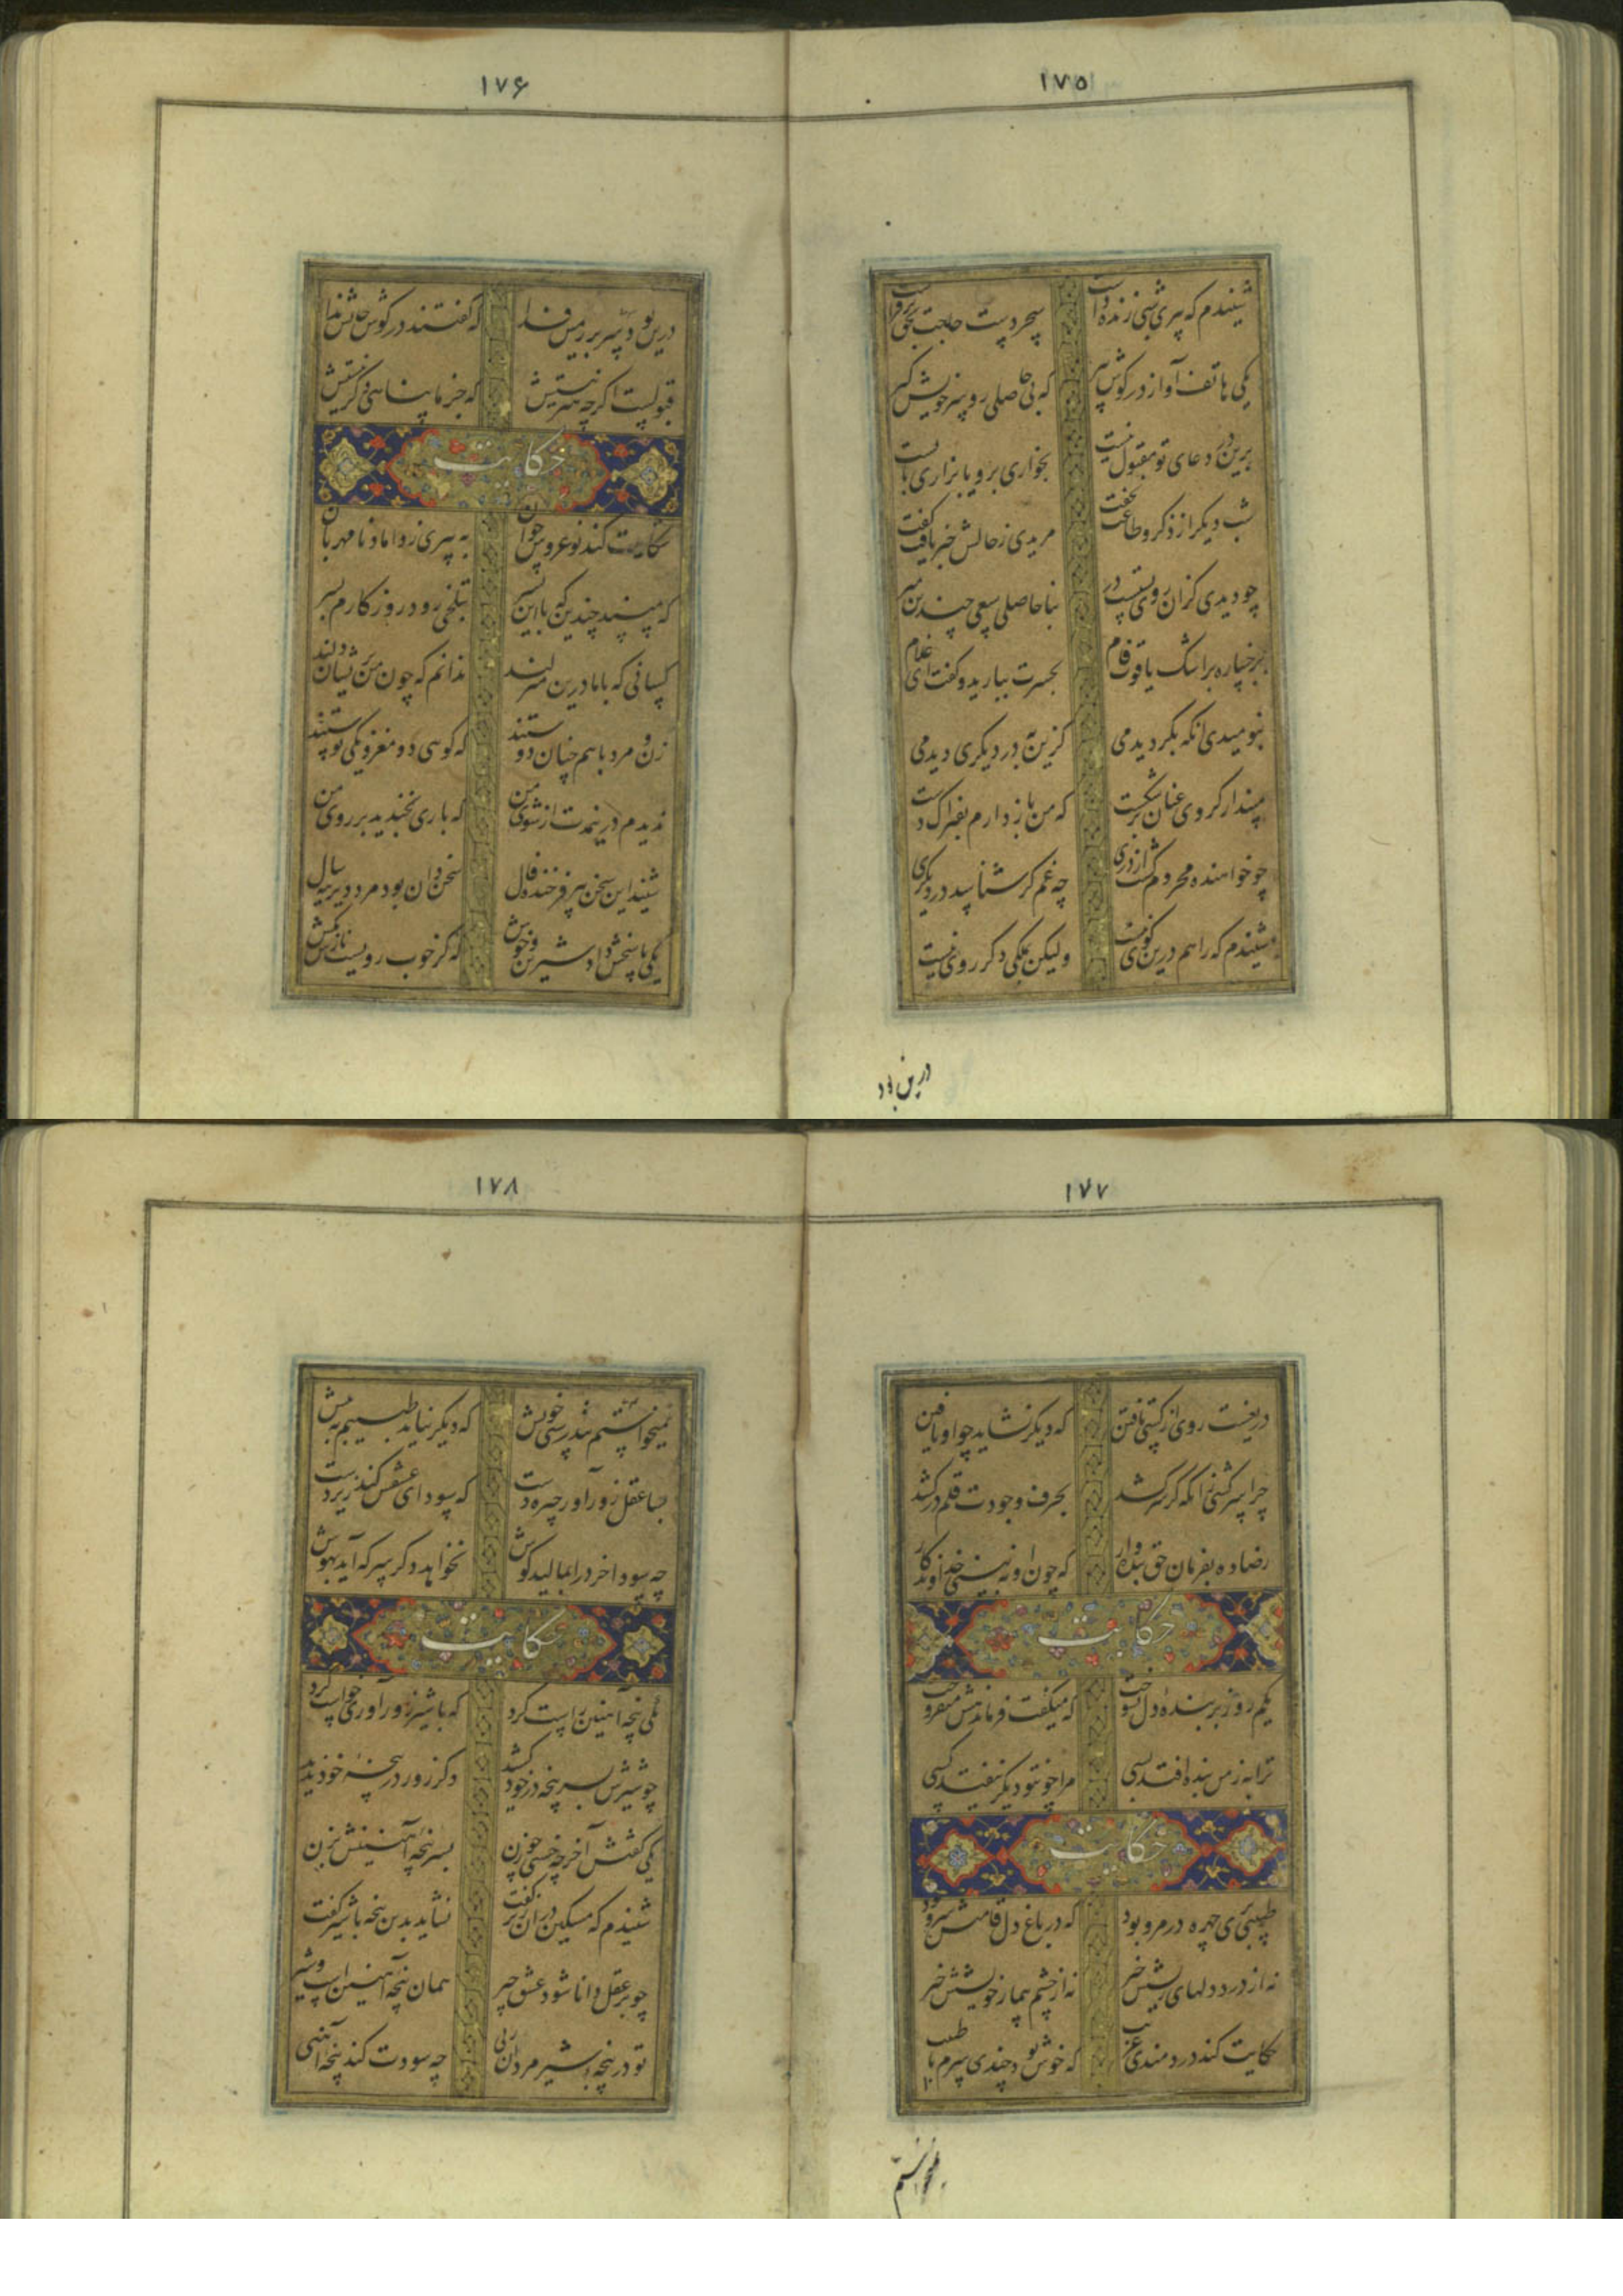 ۱۷۵
شنیدم که پیری شبی زنده داشت سحر دست حاجت بحق برفراشت
یکی هاتف آواز در گوش پیر که بی حاصلی رو سر خویش گیر
برین در دعای تو مقبول نیست بخواری برو یا بزاری بایست
شب دیگر از ذکر و طاعت نخفت مریدی ز حالش خبر یافت گفت
چو دیدی کزان روی بستست در به بیحاصلی سعی چندین مبر
برخساره بر اشک یاقوت فام بحسرت ببارید و گفت ای غلام
بنومیدی آنگه بگردیدمی کزین به در دیگری دیدمی
مپندار گر وی عنان بر شکست که من باز دارم ز فتراک دست
چو خواهنده محروم گشت از دری چه غم گر شناسد در دیگری
شنیدم که راهم درین کوی نیست ولیکن بملکی دگر روی نیست
درین بود
۱۷۶
درین بود و سر بر زمین فدا که گفتند در گوش جانش ندا
قبولست اگرچه هنر نیستش که جز ما پناهی دگر نیستش
حکایت
شکایت کند نوعروسی جوان به پیری ز داماد نامهربان
که مپسند چندین که با این پسر بتلخی رود روزگارم بسر
کسانی که با ما درین منزلند ندانم که چون من پریشان دلند
زن و مرد با هم چنان دوستند که گویی دو مغز و یکی پوستند
ندیدم درین مدت از شوی من که باری بخندید بر روی من
شنید این سخن پیر فرخنده فال سخن دان بود مرد دیرینه سال
یکی پاسخش داد شیرین و خوش که گر خوب رویست نازش بکش
۱۷۷
دریغست روی از کسی تافتن که دیگر نشاید چو او یافتن
چرا سرکشی زانکه گر سر کشد بحرف وجودت قلم درکشد
رضا ده بفرمان حق بنده وار که چون او نبینی خداوندگار
حکایت
یکم روز بر بنده دل بسوخت که میگفت و فرماندهش میفروخت
ترا بنده از من به افتد بسی مرا چون تو دیگر نیفتد کسی
حکایت
طبیبی پری چهره در مرو بود که در باغ دل قامتش سرو بود
نه از درد دلهای ریشش خبر نه از چشم بیمار خویشش خبر
حکایت کند دردمندی غریب که خوش بود چندی سرم با طبیب
نمیخواستم
۱۷۸
نمیخواستم تندرستی خویش که دیگر نیاید طبیبم به پیش
بسا عقل زورآور چیره دست که سودای عشقش کند زیردست
چو سودا خرد را بمالید گوش نخواهد دگر سر که آید بهوش
حکایت
یکی پنجه آهنین راست کرد که با شیر زورآوری خواست کرد
چو شیرش بسر پنجه در خود کشد دگر زور در پنجه خود ندید
یکی گفتش آخر چه خسبی چو زن بسر پنجه آهنینش بزن
شنیدم که مسکین در آن زیر گفت نشاید بدین پنجه با شیر گفت
چو بر عقل دانا شود عشق چیر همان پنجه آهنینست و شیر
تو در پنجه شیر مردان زنی چه سودت کند پنجه آهنی